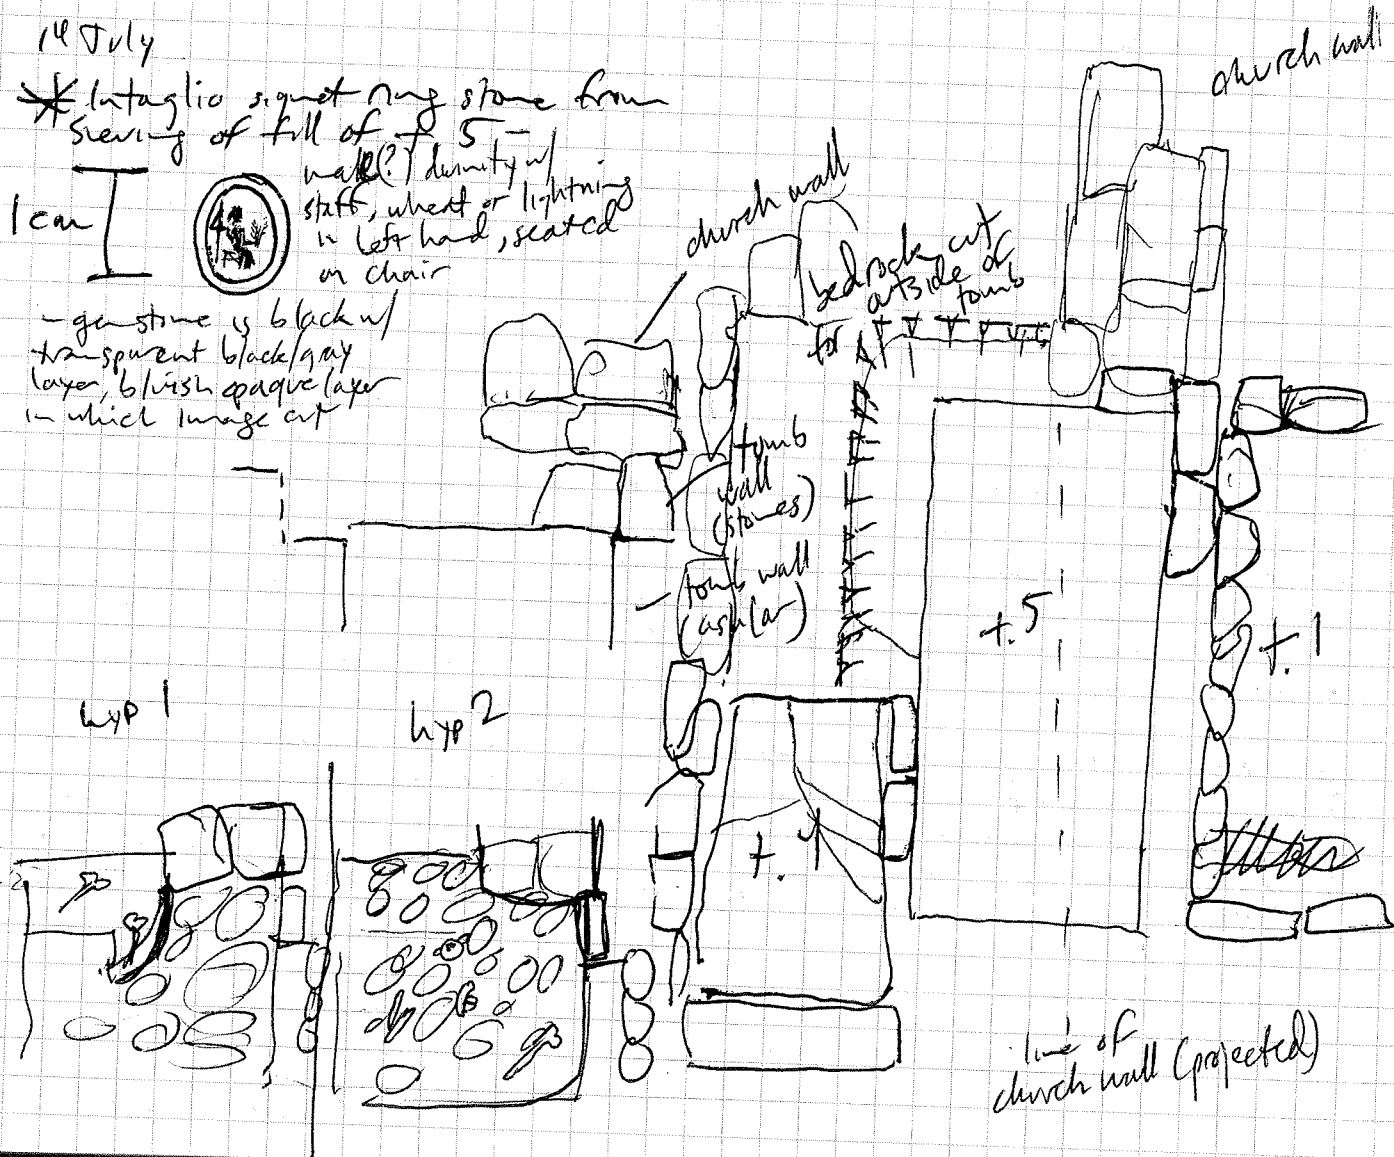 14 July
* Intaglio signet ring stone from
sieving of fill of t 5 -
male(?) divinity w/
staff, wheat or lightning
in left hand, seated
on chair
1 cm
- gemstone is black w/
transparent black/gray
layer, bluish opaque layer
in which image cut
church wall
church wall
bedrock cut
for outside of
tomb
tomb
wall
(stones)
tomb wall
(ashlar)
t.5
t.1
hyp 1
hyp 2
t.4
line of
church wall (projected)